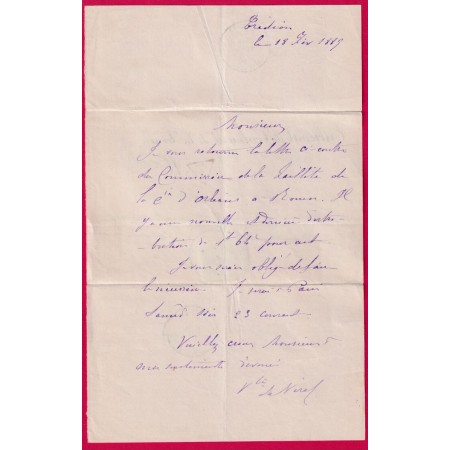 Trédion
le 18 Fév 1889
Monsieur,
Je vous retourne la lettre ci contre
du Commission de la faillite de
la Cie d'Orléans à Rouen. Il
y a une nouvelle
pour cet
Je vous serai obligé de faire
le nécessaire. Je serai à Paris
Samedi soir 23 courant
Veuillez croire Monsieur à
mes sentiments dévoués
Vte de Virel